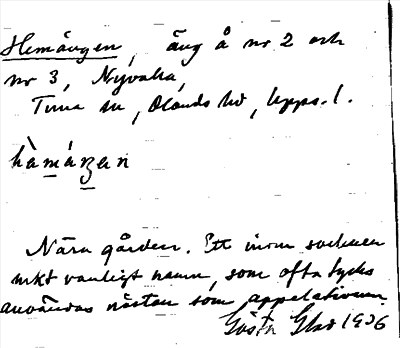 Hemängen, äng å nr 2 och
nr 3, Nyvalla,
Tuna sn, Olands hd, Upps. l.
hàmáŋen
Nära gården. Ett inom socknen
mkt vanligt namn, som ofta tycks
användas nästan som appelativum.
Gösta 1926